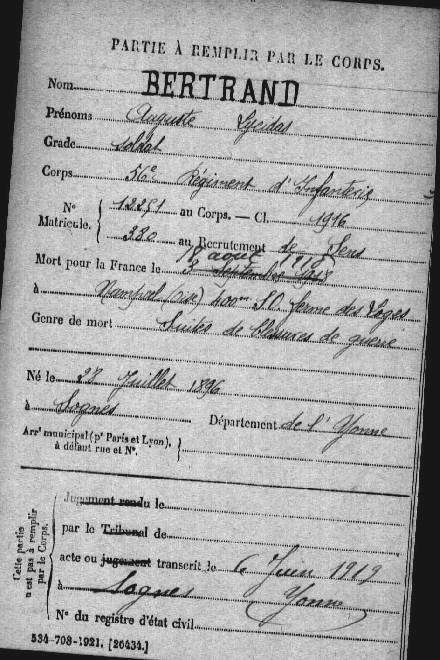 PARTIE À REMPLIR PAR LE CORPS.
Nom BERTRAND
Prénoms Auguste Lycidas
Grade soldat
Corps 56e Régiment d'Infanterie
No Matricule. 12251 au Corps. — Cl. 1916
380 au Recrutement de Sens
août 1918
Mort pour la France le 3 Septembre
à (oise) 400m S.O. ferme des Loges
Genre de mort Suites de blessures de guerre
Né le 28 Juillet 1896
à Sognes Département de l'Yonne
Arrt municipal (pr Paris et Lyon), à défaut rue et No.
Cette partie n'est pas à remplir par le Corps.
Jugement rendu le
par le Tribunal de
acte ou jugement transcrit le 6 Juin 1919
à Sognes Yonne
No du registre d'état civil
534-708-1921. [26434.]